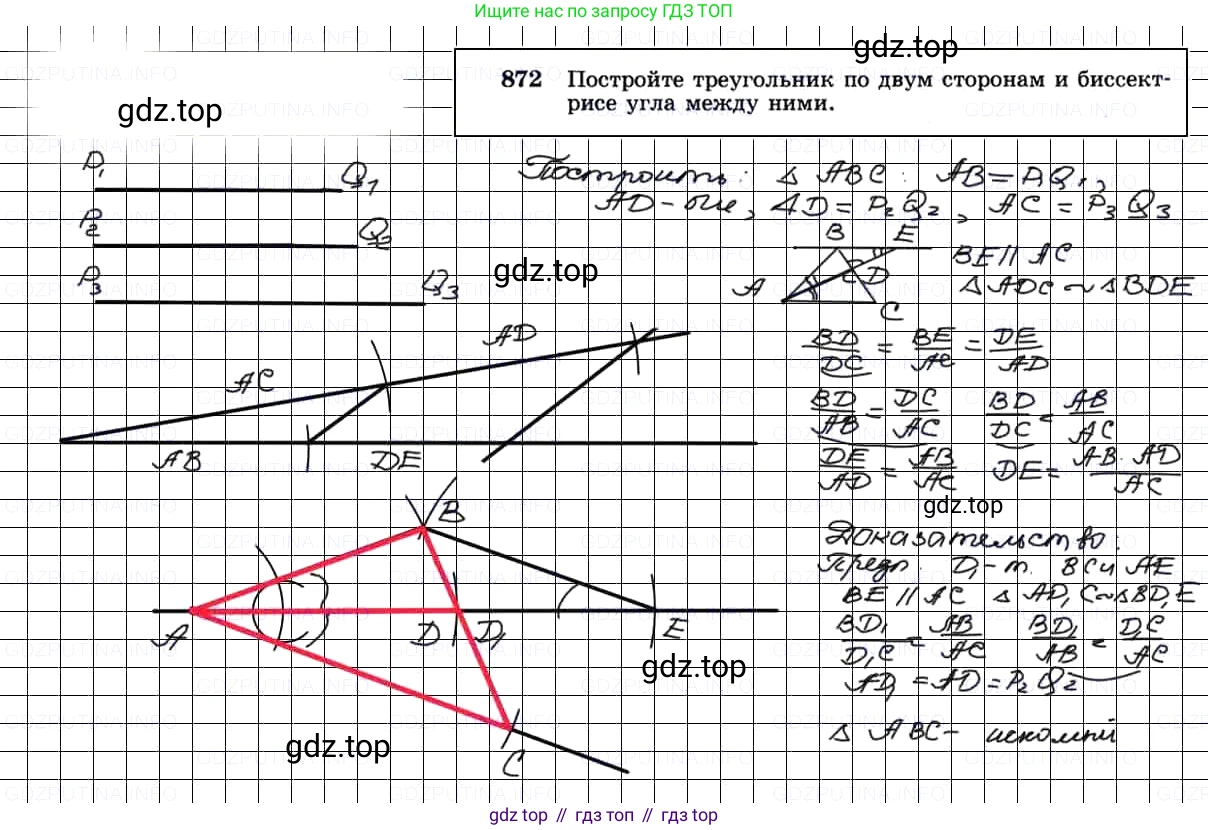 Ищите нас по запросу ГДЗ ТОП
gdz.top
872 Постройте треугольник по двум сторонам и биссект-
рисе угла между ними.
gdz.top
P₁ Q₁
P₂ Q₂
P₃ Q₃
Построить: Δ ABC: AB = P₁Q₁,
AD – бис, AD = P₂Q₂, AC = P₃Q₃
B E
A D
C
BE || AC
Δ ADC ~ Δ BDE
gdz.top
BD/DC = BE/AC = DE/AD
BD/AB = DC/AC BD/DC = AB/AC
DE/AD = AB/AC DE = AB · AD/AC
AD
AC
AB DE
gdz.top
Доказательство:
Предп. D₁ – т. BC и AE
BE || AC Δ AD₁C ~ Δ BD₁E
BD₁/D₁C = AB/AC BD₁/AB = D₁C/AC
AD₁ = AD = P₂Q₂
Δ ABC – искомый
B
A D D₁ E
C
gdz.top
gdz.top
gdz.top // гдз топ // gdz top